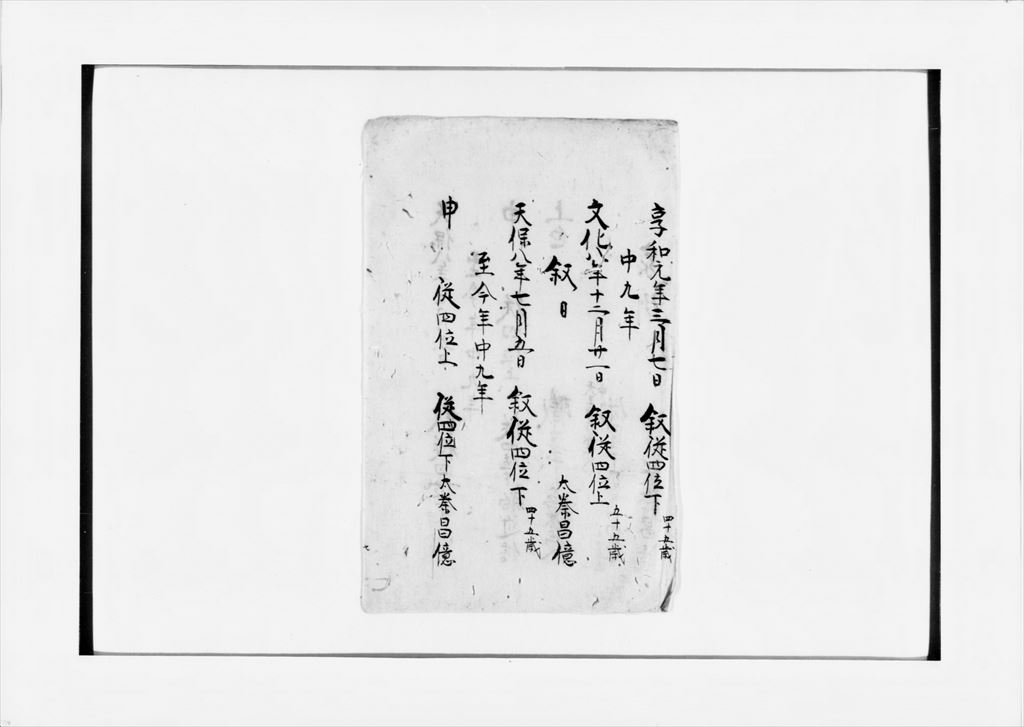 享和元年三月七日 叙従四位下 四十五歳
中九年
文化八年十二月廿一日 叙従四位上 五十五歳
叙日 太秦昌億
天保八年七月五日 叙従四位下 四十五歳
至今年中九年
申 従四位上 従四位下太秦昌億